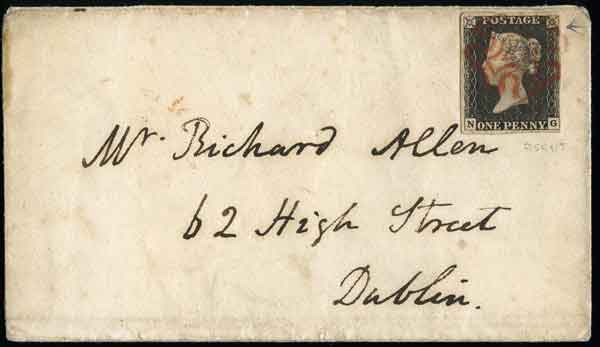 POSTAGE
N ONE PENNY G
Mr. Richard Allen
62 High Street
Dublin.